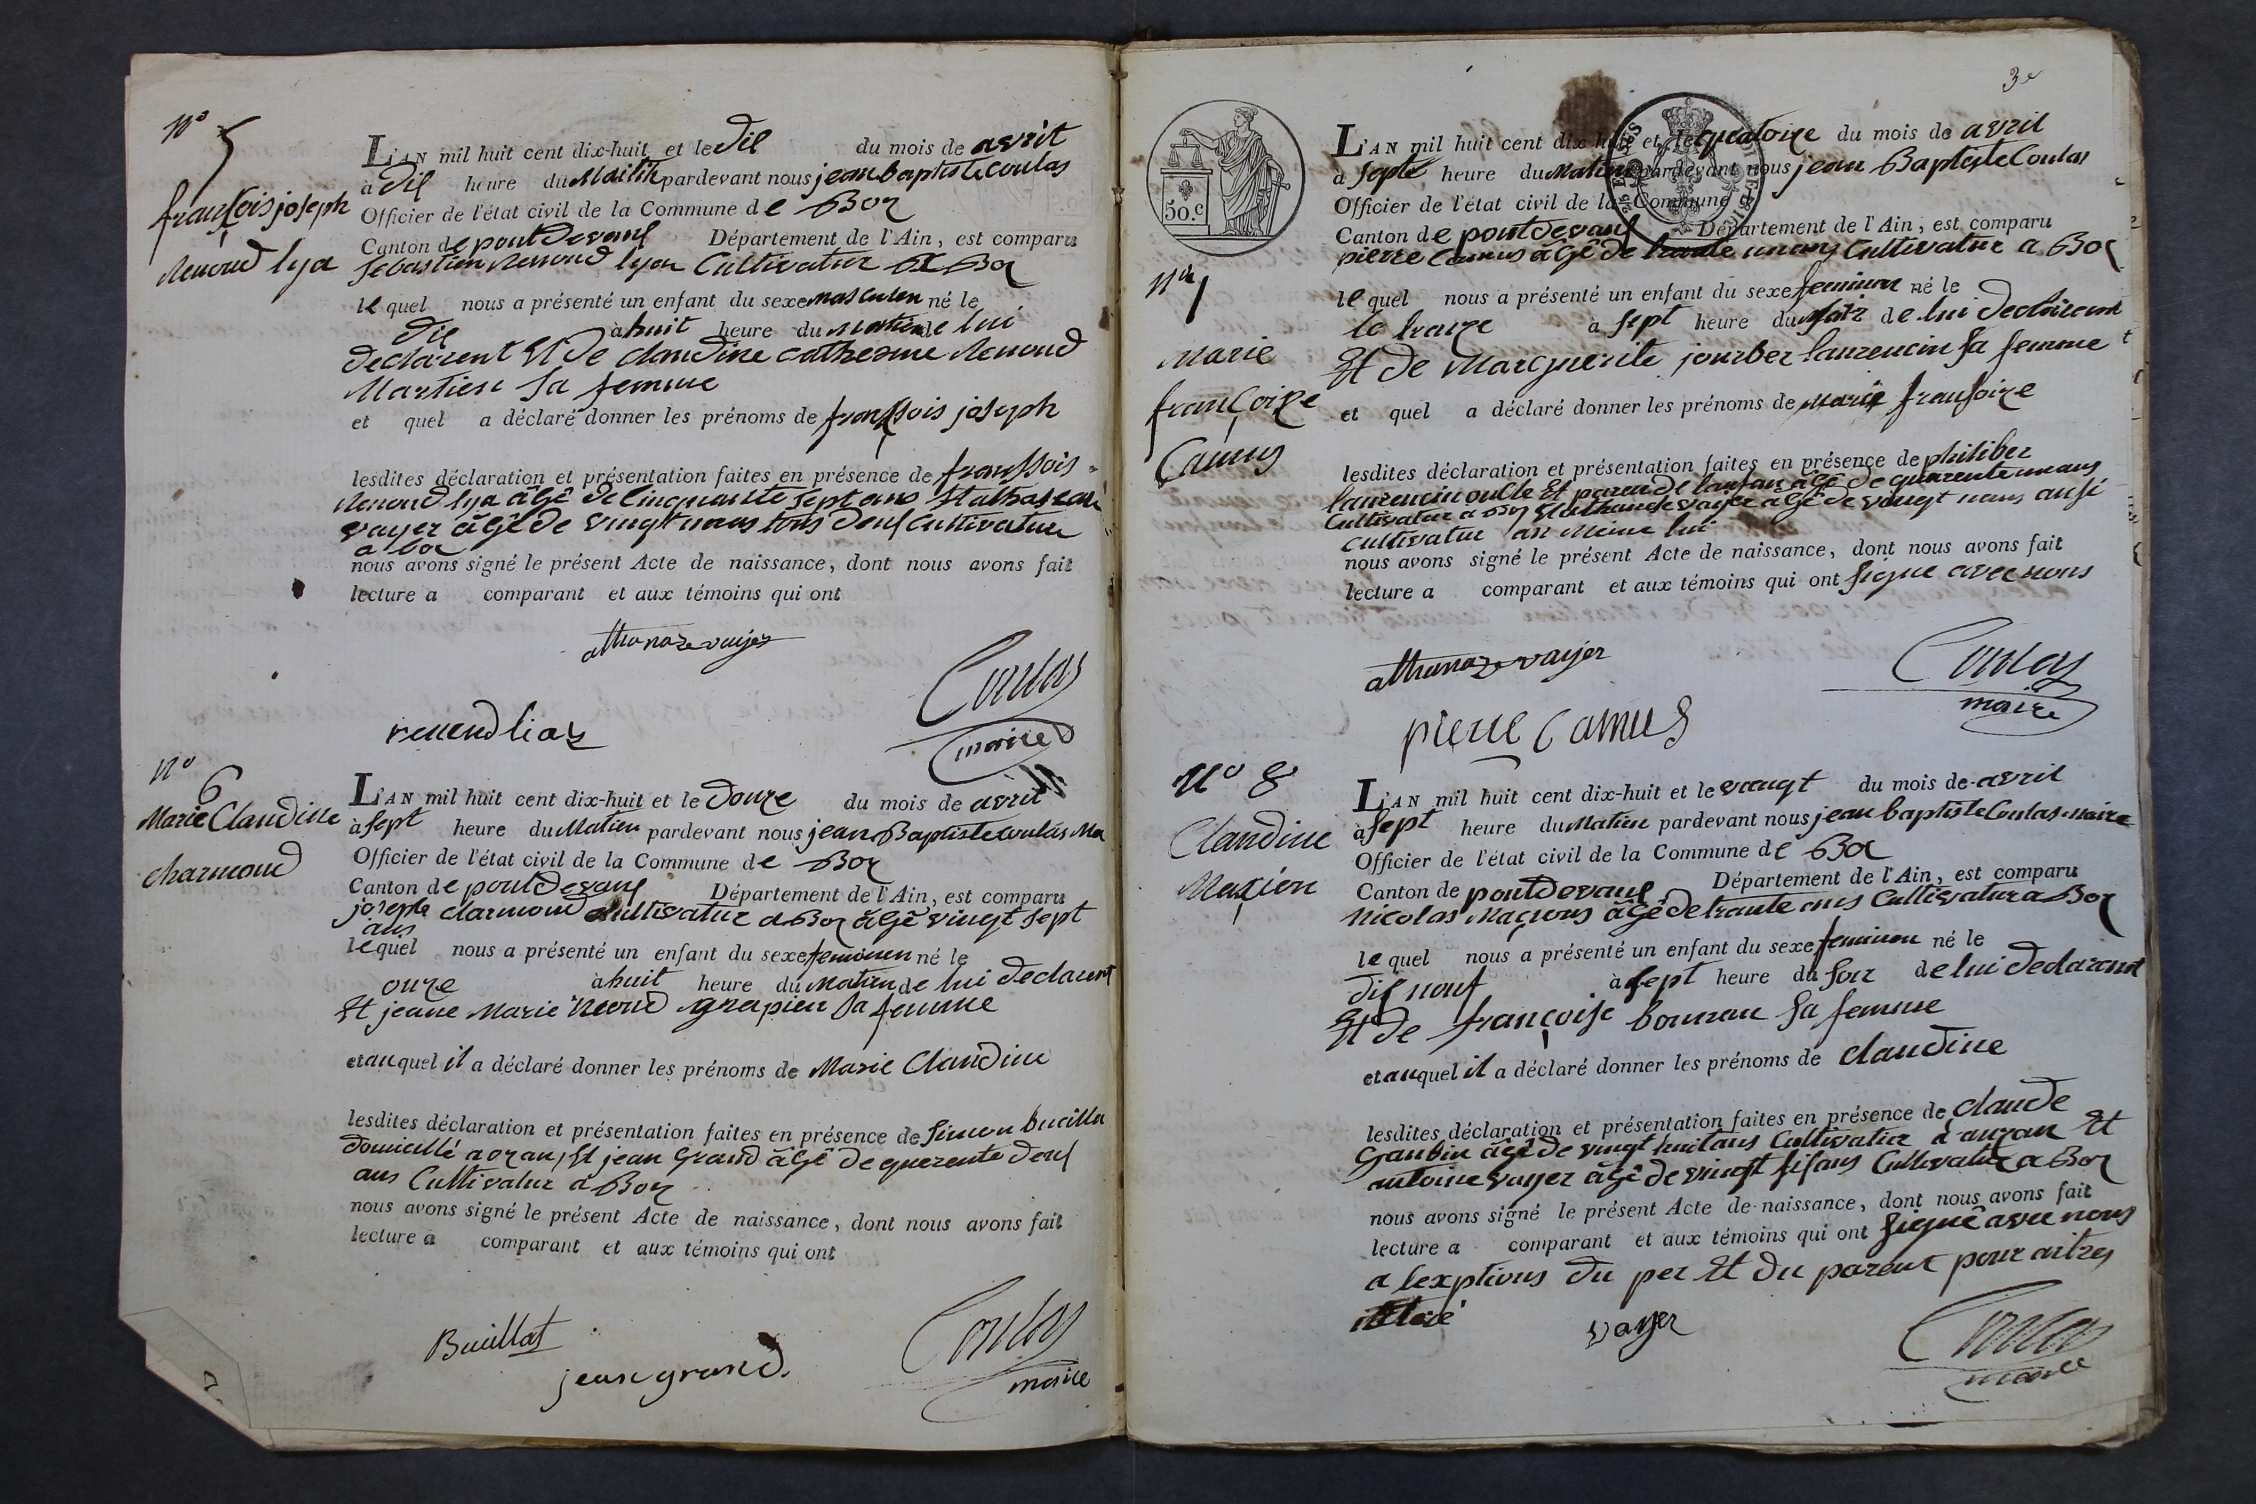 No
5
françois joseph
Renoud lya
L'AN mil huit cent dix-huit et le dix du mois de avril
à dix heure du Maitin pardevant nous jean baptiste coulas
Officier de l'état civil de la Commune de Boz
Canton de pont devaux Département de l'Ain, est comparu
sebastien Renoud lyon Cultivatur a Boz
lequel nous a présenté un enfant du sexe masculen né le
dix à huit heure du matien de lui
declarent Et de claudine catherine Renoud
Martien sa femme
et quel a déclaré donner les prénoms de franssois joseph
lesdites déclaration et présentation faites en présence de franssois
Renoud lya âgé de Cinquante sept ans Et athanaze
vayer âgé de vingt nans tous deux Cultivatur
a boz
nous avons signé le présent Acte de naissance, dont nous avons fait
lecture a comparant et aux témoins qui ont
athanaze vayer
Coulas
renoud liaz
maire
No
6
Marie Claudine
charmond
L'AN mil huit cent dix-huit et le douze du mois de avril
à sept heure du Matien pardevant nous jean Baptiste coulas Ma
Officier de l'état civil de la Commune de Boz
Canton de pont devaux Département de l'Ain, est comparu
joseph clarmond cultivatur a Boz âgé vingt sept
ans
lequel nous a présenté un enfant du sexe feminen né le
onze à huit heure du matien de lui declarent
Et jeane Marie Reoud grapien sa femme
et au quel il a déclaré donner les prénoms de Marie Claudine
lesdites déclaration et présentation faites en présence de simon bucilla
domicillé a ozan, Et jean Grand âgé de querente deux
ans Cultivatur a Boz
nous avons signé le présent Acte de naissance, dont nous avons fait
lecture a comparant et aux témoins qui ont
Buillat
jean grand
Coulas
maire
3e
50.c
No 7
Marie
françoize
Camus
L'AN mil huit cent dix-huit et le quatoize du mois de avril
à septe heure du Matien pardevant nous jean Baptiste Coulas
Officier de l'état civil de la Commune
Canton de pont devaux Département de l'Ain, est comparu
pierre Camus âgé de trante un ans Cultivatur a Boz
lequel nous a présenté un enfant du sexe feminen né le
le traize à sept heure du soir de lui declarent
Et de Marguerite jourber laurencin sa femme
et quel a déclaré donner les prénoms de Marie fransoize
lesdites déclaration et présentation faites en présence de philiber
laurencin oncle Et paren de lanfan âgé de quarente un ans
Cultivatur a Boz Et athanaze vayer âgé de vingt nans ausi
cultivatur au Meme lui
nous avons signé le présent Acte de naissance, dont nous avons fait
lecture a comparant et aux témoins qui ont signe avec nous
athanaze vayer
Coulas
maire
pierre Camus
No 8
Claudine
Maxien
L'AN mil huit cent dix-huit et le vengt du mois de avril
à sept heure du Matien pardevant nous jean baptiste Coulas maire
Officier de l'état civil de la Commune de Boz
Canton de pont devaux Département de l'Ain, est comparu
Nicolas Maçions âgé de trante ans Cultivatur a Boz
lequel nous a présenté un enfant du sexe feminen né le
dix nouf à sept heure du soir de lui declarant
Et de françoise bonnau sa femme
et au quel il a déclaré donner les prénoms de claudine
lesdites déclaration et présentation faites en présence de claude
Gaubin âgé de vingt huit ans Cultivatur a auzan Et
antoine vayer âgé de vingt six ans Cultivatur a Boz
nous avons signé le présent Acte de naissance, dont nous avons fait
lecture a comparant et aux témoins qui ont signé avec nous
a lexptions du per Et du parent pour aitres
vayer
Coulas
maire